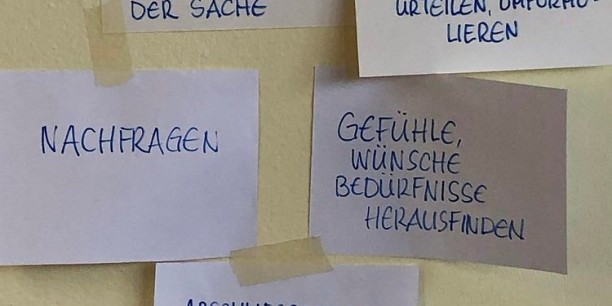 DER SACHE
URTEILEN,
LIEREN
NACHFRAGEN
GEFÜHLE,
WÜNSCHE
BEDÜRFNISSE
HERAUSFINDEN